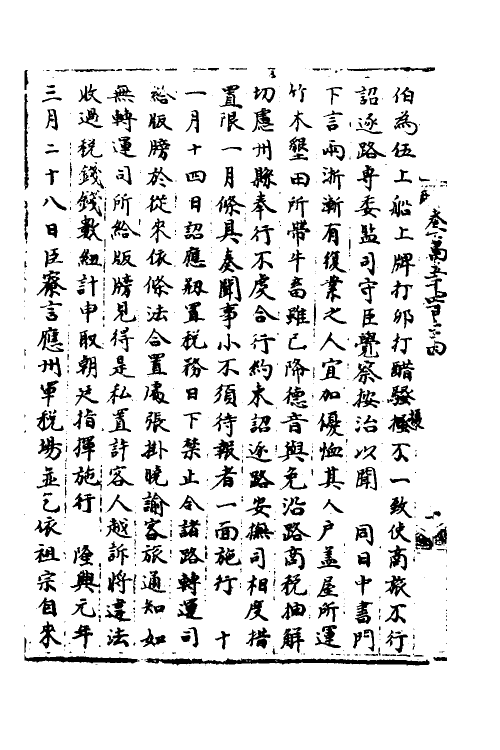 伯為伍上船上牌打卯打醋騷擾不一致使商旅不行
詔逐路專委監司守臣覺察按治以聞　同日中書門
下言兩浙漸有復業之人宜加優恤其人戶蓋屋所運
竹木墾田所帶牛畜雖已降德音與免沿路商稅抽解
切慮州縣奉行不虔合行約束詔逐路安撫司相度措
置限一月條具奏聞事小不須待報者一面施行　十
一月十四日詔應剏置稅務日下禁止令諸路轉運司
給版牓於從來依條法合置處張掛曉諭客旅通知如
無轉運司所給版牓見得是私置許客人越訴將違法
收過稅錢錢數紐計申取朝廷指揮施行　隆興元年
三月二十八日臣寮言應州軍稅場並乞依祖宗自來
卷一萬五千四